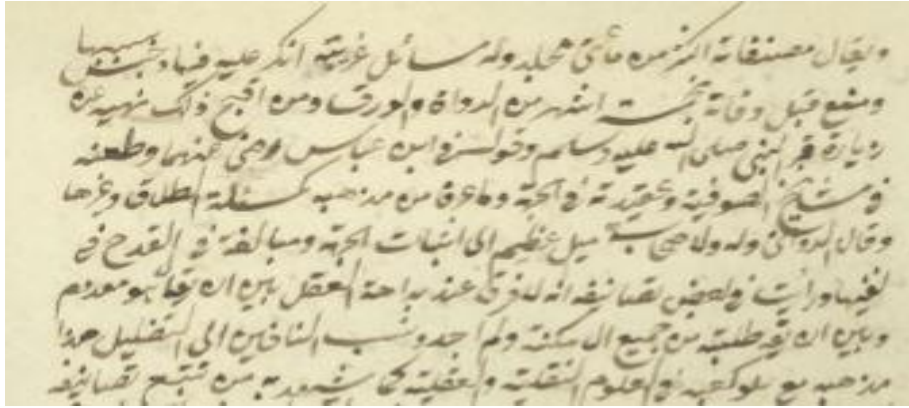 ويقال مصنفاته اكثر من مائتي مجلد وله مسائل غريبة انكر عليه فيها وحبس بسببها
ومنع قبل وفاته بخمسة اشهر من الدواة والورق ومن اقبح ذلك نهيه عن
زيارة قبر النبي صلى الله عليه وسلم وقوله في ابن عباس رضي عنهما وطعنه
في مشايخ الصوفية وعقيدته في الجهة وما عرف من مذهبه كمسئلة الطلاق وغيرها
وقال الدواني وله ولاصحابه ميل عظيم الى اثبات الجهة ومبالغة في القدح في
نفيها ورأيت في بعض تصانيفه انه لا فرق عند بداهة العقل بين ان يقال هو معدوم
وبين ان يقال طلبته من جميع الامكنة ولم اجد ونسب النافين الى التضليل هذا
مذهبه مع علو كعبه في العلوم النقلية والعقلية كما يشهد به من تتبع تصانيفه